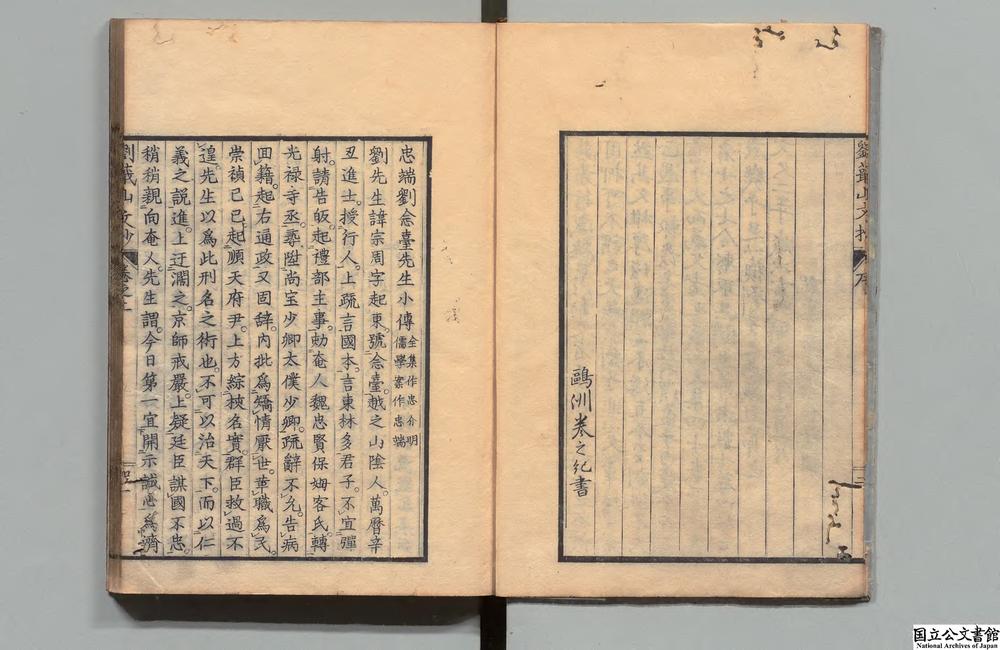 劉蕺山文抄 序
鷗洲卷之紀書
忠端劉念臺先生小傳 全集作忠介明儒學案作忠端
劉先生諱宗周字起東號念臺越之山陰人萬曆辛
丑進士授行人上疏言國本言東林多君子不宜彈
射請告皈起禮部主事劾奄人魏忠賢保姆客氏轉
光祿寺丞尋陞尚宝少卿太僕少卿疏辭不允告病
囬籍起右通政又固辭內批為矯情厭世革職為民
崇禎己巳起順天府尹上方綜核名實群臣救過不
遑先生以為此刑名之術也不可以治天下而以仁
義之說進上迂濶之京師戒嚴上疑廷臣謀國不忠
稍稍親向奄人先生謂今日第一宜開示誠心為濟
劉蕺山文抄 卷之上
国立公文書館
National Archives of Japan